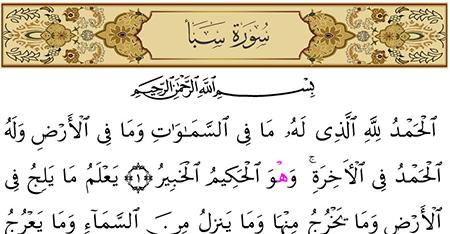 سُورَةُ سَبَأ
بِسْمِ اللَّهِ الرَّحْمَٰنِ الرَّحِيمِ
الْحَمْدُ لِلَّهِ الَّذِى لَهُۥ مَا فِى السَّمَٰوَٰتِ وَمَا فِى الْأَرْضِ وَلَهُ
الْحَمْدُ فِى الْأَخِرَةِ ۚ وَهُوَ الْحَكِيمُ الْخَبِيرُ ﴿١﴾ يَعْلَمُ مَا يَلِجُ فِى
الْأَرْضِ وَمَا يَخْرُجُ مِنْهَا وَمَا يَنزِلُ مِنَ السَّمَآءِ وَمَا يَعْرُجُ